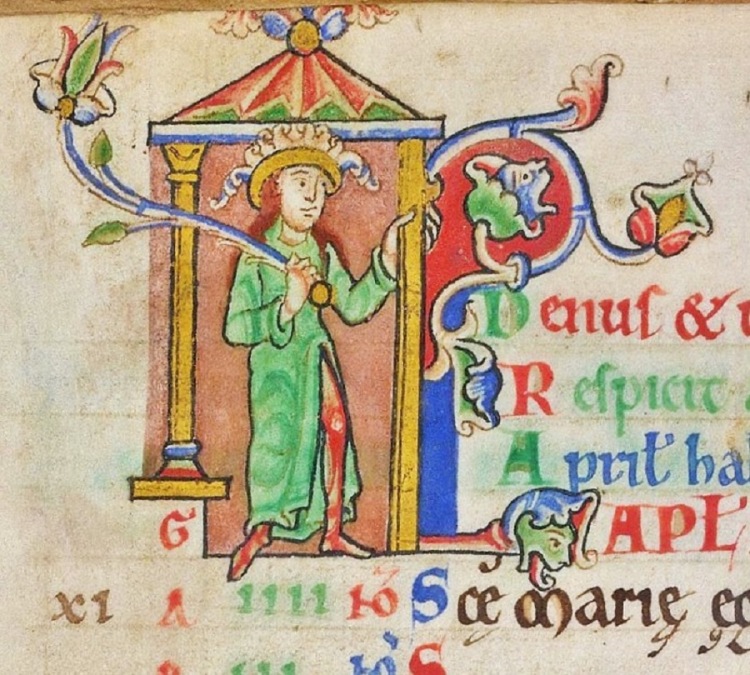 Denus & u
Respicit
April' hab
G APL'
xi A iiii No Sce marie eg